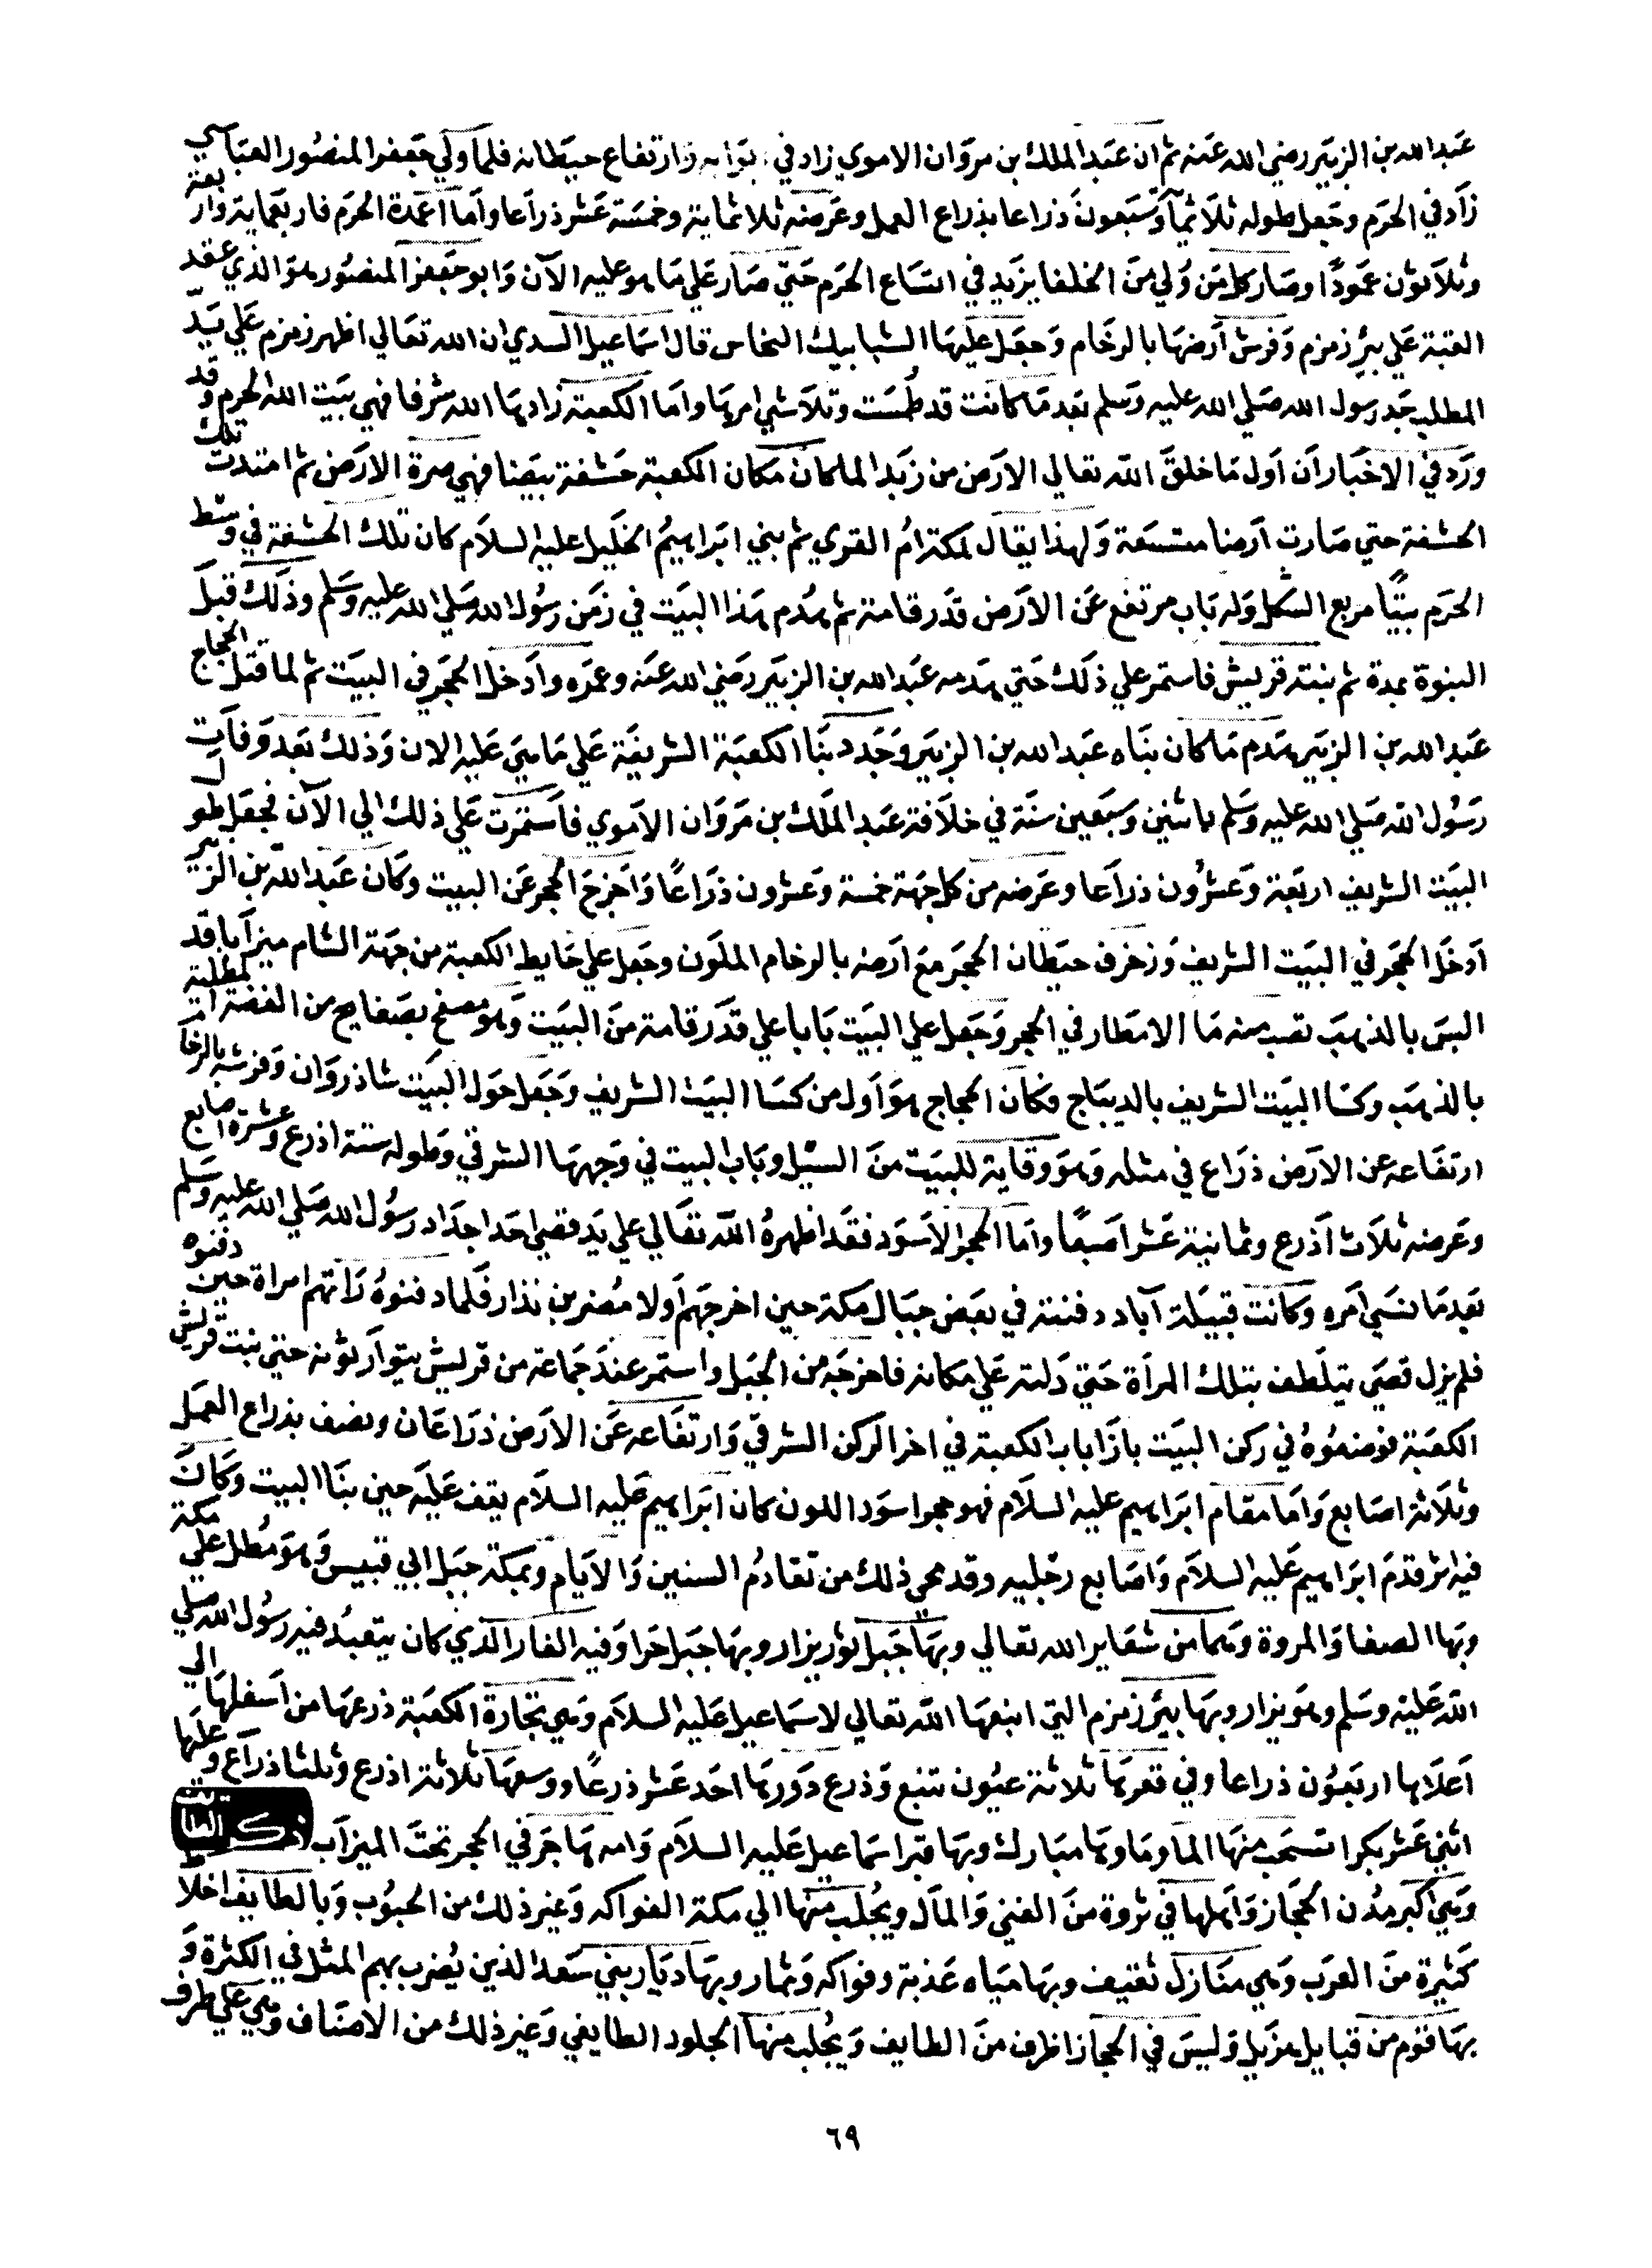 عبد الله بن الزبير رضي الله عنه ثم ان عبد الملك بن مروان الاموي زاد في ابوابه وارتفاع حيطانه فلما ولي جعفر المنصور العباسي
زاد في الحرم وجعل طوله ثلاثمآ وسبعون ذراعا بذراع العمل وعرضه ثلاثماية وخمسة عشر ذراعا واما اعمدة الحرم فاربعماية واربعة
وثلاثون عمودا وصار كل من ولي من الخلفا يزيد في اتساع الحرم حتي صار علي ما هو عليه الآن وابو جعفر المنصور هو الذي عقد
القبة علي بئر زمزم وفرش ارضها بالرخام وجعل عليها الشبابيك النحاس قال اسماعيل السدي ان الله تعالي اظهر زمزم علي يد
المطلب جد رسول الله صلي الله عليه وسلم بعد ما كانت قد طمست وتلاشي امرها واما الكعبة زادها الله شرفا فهي بيت الله الحرم وقد
ورد في الاخبار ان اول ما خلق الله تعالي الارض من زبد الما كان مكان الكعبة حشفة بيضا فهي صرة الارض ثم امتدت تلك
الحشفة حتي صارت ارضا متسعة ولهذا يقال لمكة ام القري ثم بني ابراهيم الخليل عليه السلام كان تلك الحشفة في وسط
الحرم بيتًا مربع الشكل وله باب مرتفع عن الارض قدر قامة ثم هدم هذا البيت في زمن رسول الله صلي الله عليه وسلم وذلك قبل
النبوة بمدة ثم بنته قريش فاستمر علي ذلك حتي هدمه عبد الله بن الزبير رضي الله عنه وعمره وادخل الحجر في البيت ثم لما قتل الحجاج
عبد الله بن الزبير هدم ما كان بناه عبد الله بن الزبير وجدد بنا الكعبة الشريفة علي ما هي عليه الان وذلك بعد وفات
رسول الله صلي الله عليه وسلم باثنين وسبعين سنة في خلافة عبد الملك بن مروان الاموي فاستمرت علي ذلك الي الآن فجعل طول
البيت الشريف اربعة وعشرون ذراعا وعرضه من كل جهة خمسة وعشرون ذراعًا واخرج الحجر عن البيت وكان عبد الله بن الزبير
ادخل الحجر في البيت الشريف وزخرف حيطان الحجر مع ارضه بالرخام الملون وجعل علي حايط الكعبة من جهة الشام ميزابا قد
البس بالذهب تصب منه ما الامطار في الحجر وجعل علي البيت بابا علي قدر قامة من البيت وهو مصفح بصفايح من الفضة المطلية
بالذهب وكسا البيت الشريف بالديباج فكان الحجاج هو اول من كسا البيت الشريف وجعل حول البيت شاذروان وفرشه بالرخا
ارتفاعه عن الارض ذراع في مثله وهو وقاية للبيت من السيل وباب البيت في وجهها الشرقي وطوله ستة اذرع وعشرة اصابع
وعرضه ثلاث اذرع وثمانية عشر اصبعًا واما الحجر الاسود فقد اظهره الله تعالي علي يد قصي احد اجداد رسول الله صلي الله عليه وسلم
بعد ما نسي امره وكانت قبيلة آباد دفنته في بعض جبال مكة حين اخرجهم اولا مضر بن نذار فلما دفنوه راتهم امراة حين دفنوه
فلم يزل قصي يتلطف بتلك المراة حتي دلته علي مكانه فاخرجه من الجبل واستمر عند جماعة من قريش يتوارثونه حتي بنت قريش
الكعبة فوضعوه في ركن البيت بازا باب الكعبة في اخر الركن الشرقي وارتفاعه عن الارض ذراعان ونصف بذراع العمل
وثلاثة اصابع واما مقام ابراهيم عليه السلام فهو حجر اسود اللون كان ابراهيم عليه السلام يقف عليه حين بنا البيت وكان
فيه اثر قدم ابراهيم عليه السلام واصابع رجليه وقد محي ذلك من تقادم السنين والايام وبمكة جبل ابي قبيس وهو مطل علي مكة
وبها الصفا والمروة وهما من شعاير الله تعالي وبها جبل ثور يزار وبها جبل حرا وفيه الغار الذي كان يتعبد فيه رسول الله صلي
الله عليه وسلم وهو يزار وبها بير زمزم التي انبعها الله تعالي لاسماعيل عليه السلام وهي تجارة الكعبة ذرعها من اسفلها الي
اعلاها اربعون ذراعا وفي قعرها ثلاثة عيون تنبع وذرع دورها احد عشر ذرعًا ووسعها ثلاثة اذرع وثلثا ذراع وعليها
اثني عشر بكرا تسحب منها الما وماوها مبارك وبها قبر اسماعيل عليه السلام وامه هاجر في الحجر تحت الميزاب ذكر الطايف
وهي اكبر مدن الحجاز واهلها في ثروة من الغني والمال ويجلب منها الي مكة الفواكه وغير ذلك من الحبوب وبالطايف اخلاط
كثيرة من العرب وهي منازل ثقيف وبها مياه عذبة وفواكه وثمار وبها ديار بني سعد الذين يضرب بهم المثل في الكثرة و
بها قوم من قبايل هزيل وليس في الحجاز اظرف من الطايف ويجلب منها الجلود الطايفي وغير ذلك من الاصناف وهي علي طرف
٦٩